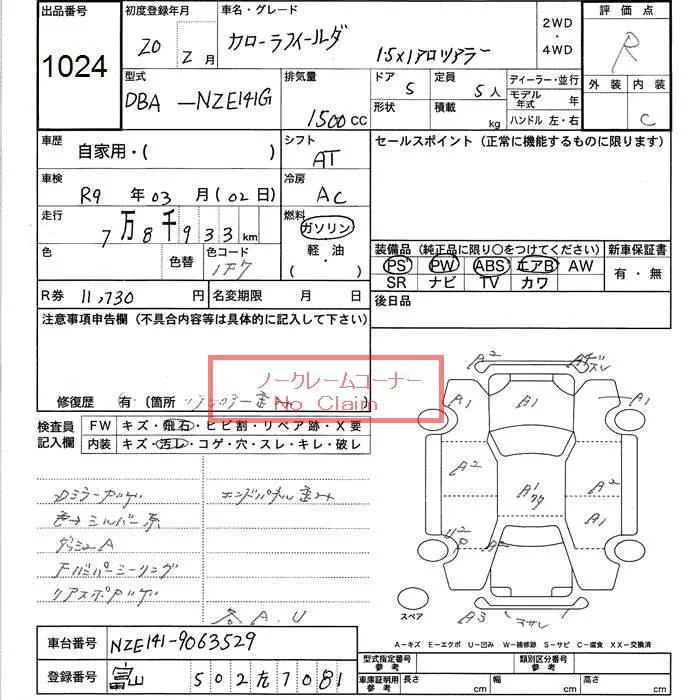 出品番号 初度登録年月 車名・グレード 2WD・4WD 評価点
1024 20年 2月 カローラフィールダー 1.5X1アロツアラー R
型式 排気量 ドア 定員 ディーラー・並行 外装 内装
DBA-NZE141G 1500cc 5 5人 モデル年式 年 C
形状 積載 kg ハンドル 左・右
車歴 シフト セールスポイント(正常に機能するものに限ります)
自家用・( ) AT
車検 冷房
R9年03月(02日) AC
走行 燃料
7万8千933km ガソリン
色 色替 色コード 軽油
1F7 ・( )
装備品(純正品に限り○をつけてください) 新車保証書
PS PW ABS エアB AW 有・無
SR ナビ TV カワ
R券 11,730円 名変期限 月 日 後日品
注意事項申告欄(不具合内容等は具体的に記入して下さい)
ノークレームコーナー
No Claim
修復歴 有 〔箇所
検査員記入欄 FW キズ・飛石・ヒビ割・リペア跡・X要
内装 キズ・汚レ・コゲ・穴・スレ・キレ・破レ
Dミラーカレキズ
色→シルバー系
ダッシュA
Fバンパーシーリング
エンドパネル歪み
各A.U
A2
A1
B1
A1
A2
A1
A2
A1
A3
スペア
A-キズ E-エクボ U-凹み W-補修跡 S-サビ C-腐食 XX-交換済
車台番号 NZE141-9063529
登録番号 富山 502 7081
型式指定番号参考 類別区分番号参考
車庫証明用参考 長さ cm 幅 cm 高さ cm